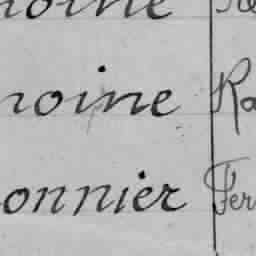 noine
noine Ra
onnier Fer